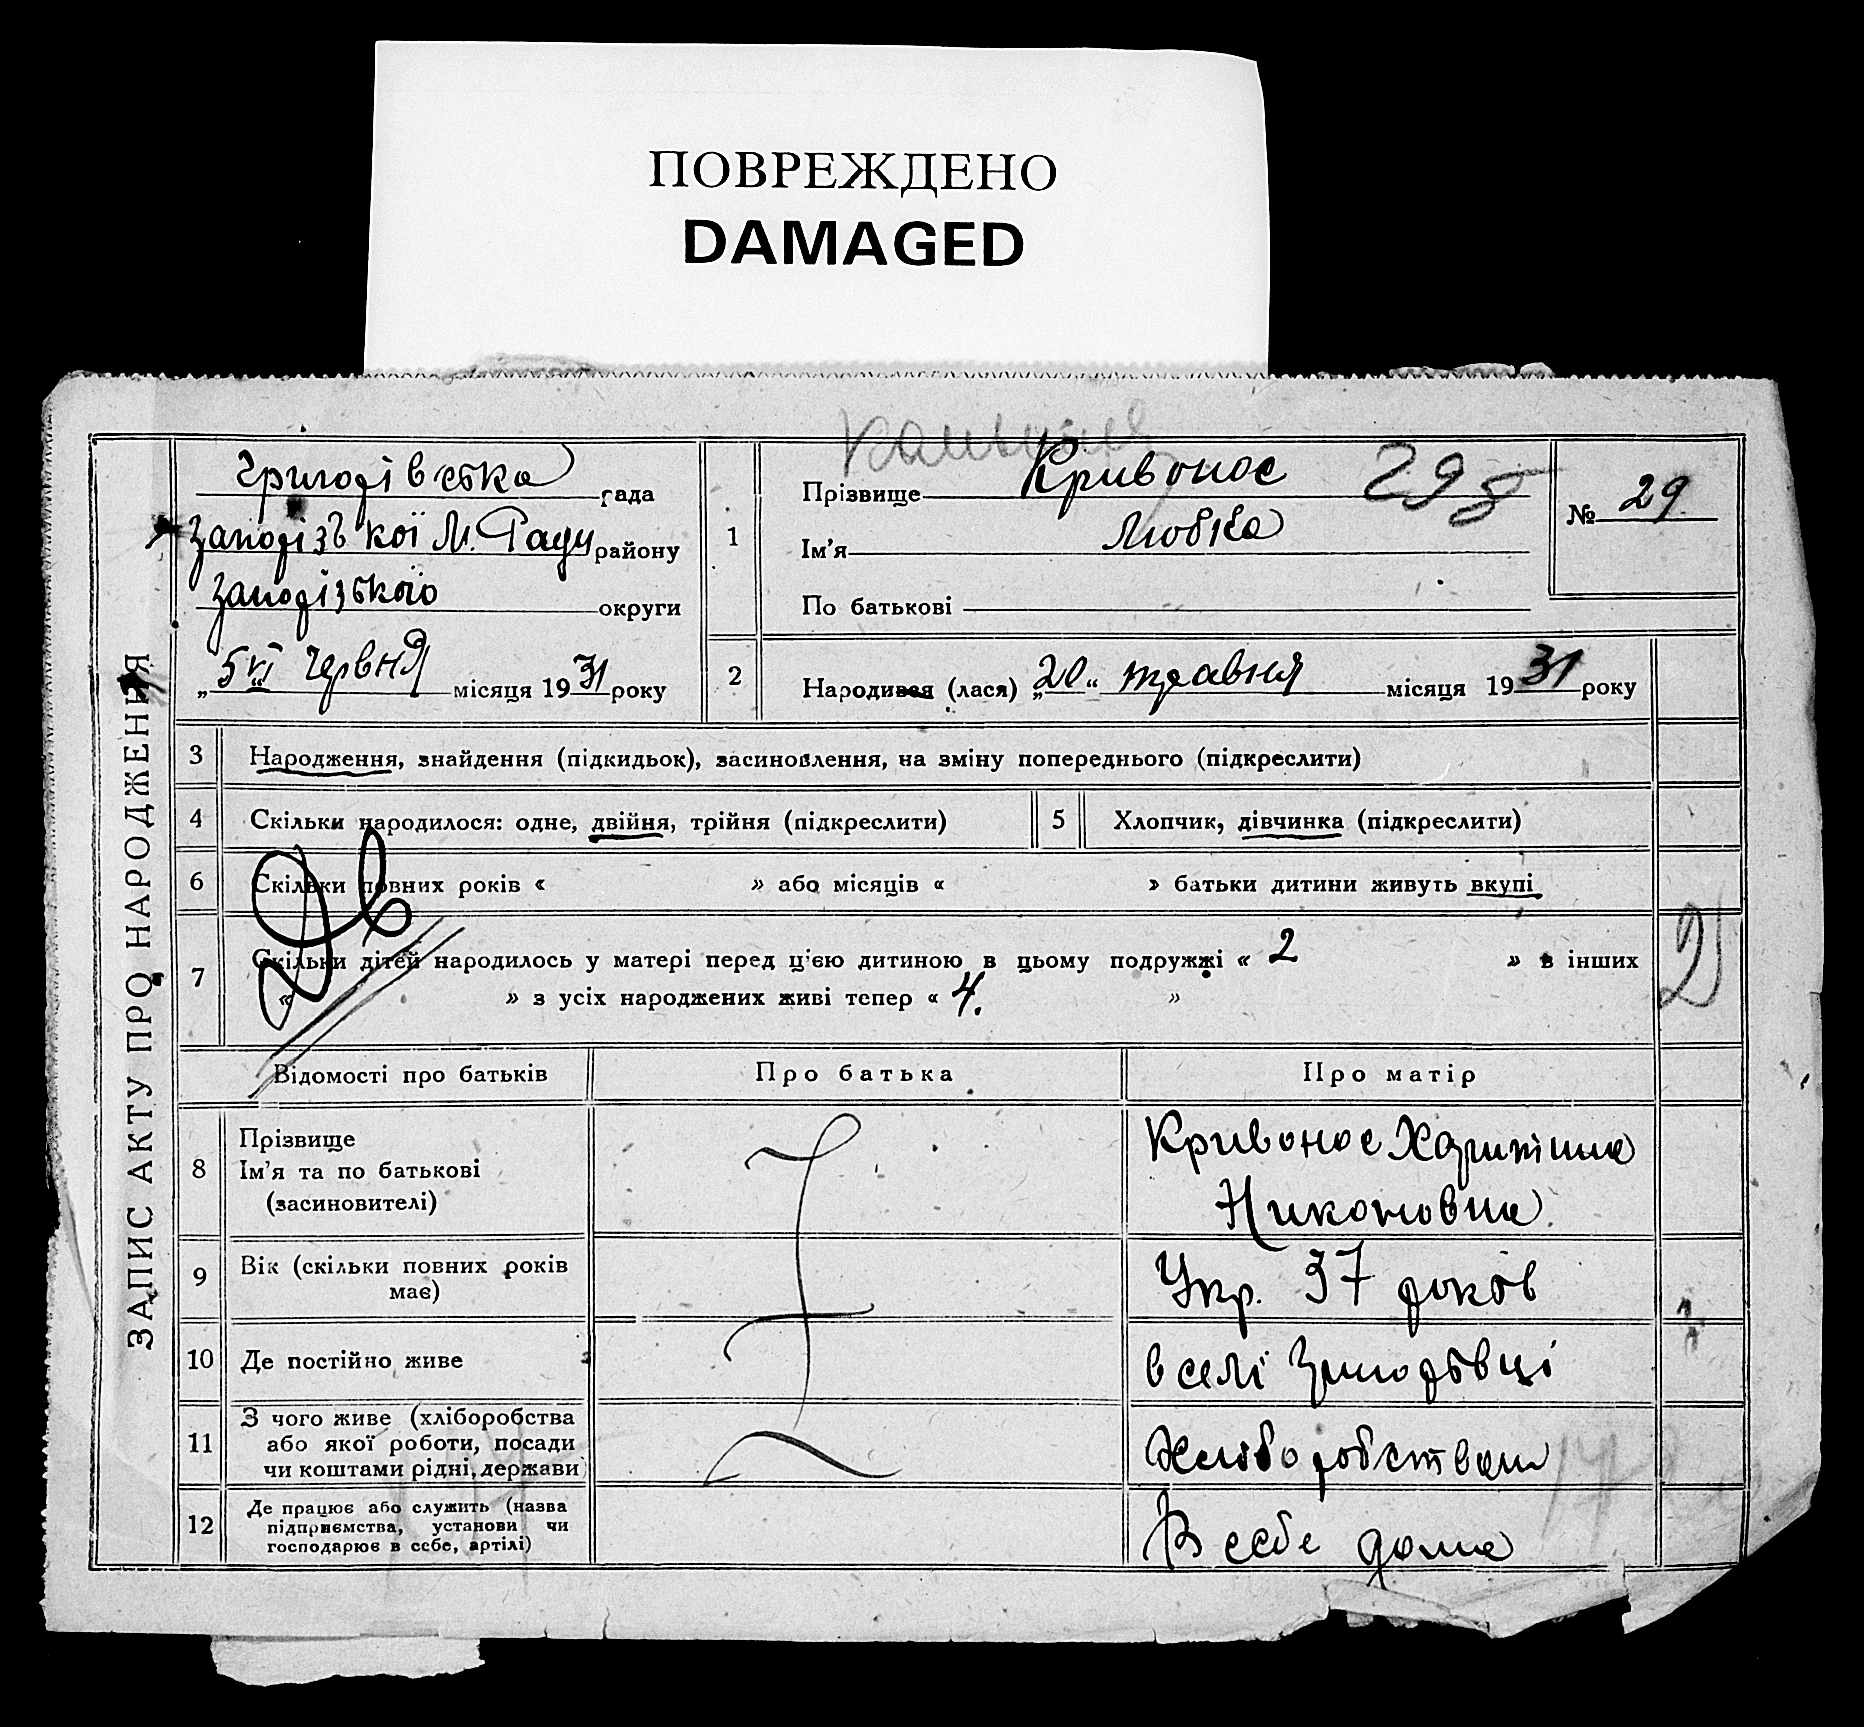 ПОВРЕЖДЕНО
DAMAGED
ЗАПИС АКТУ ПРО НАРОДЖЕННЯ
рада
Запорізької М. Ради району
Запорізького округи
„5 VI червня місяця 1931 року
1
Прізвище Кривонос 29
Ім'я Любка
По батькові
№ 29
2
Народився (лася) „20“ травня місяця 1931 року
3 Народження, знайдення (підкидьок), засиновлення, на зміну попереднього (підкреслити)
4 Скільки народилося: одне, двійня, трійня (підкреслити)
5 Хлопчик, дівчинка (підкреслити)
6 Скільки повних років « » або місяців « » батьки дитини живуть вкупі
7 Скільки дітей народилось у матері перед ц'єю дитиною в цьому подружжі « 2 » в інших
« » з усіх народжених живі тепер « 4. »
2
Відомості про батьків Про батька Про матір
8 Прізвище
Ім'я та по батькові
(засиновителі)
Кривонос Харитина
Никоновна
9 Вік (скільки повних років
має)
Укр. 37 років
10 Де постійно живе
в селі
11 З чого живе (хліборобства
або якої роботи, посади
чи коштами рідні, держави)
Хліборобством
12 Де працює або служить (назва
підприємства, установи чи
господарює в себе, артілі)
В себе дома